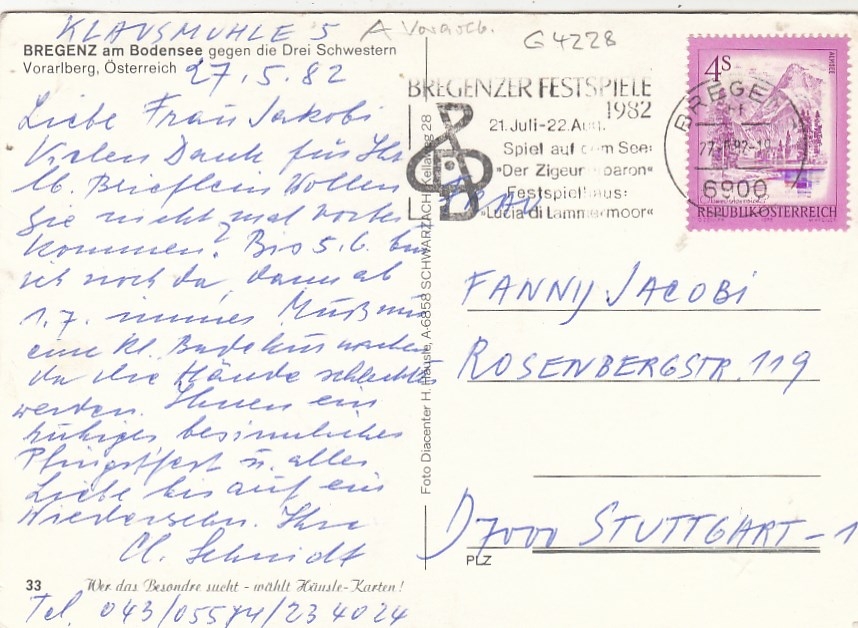 KLAUSMÜHLE 5 A Vorarlb.
G4228
BREGENZ am Bodensee gegen die Drei Schwestern
Vorarlberg, Österreich 27.5.82
Liebe Frau Jakobi
Vielen Dank für Ihr
lb. Brieflein Wollen
Sie nicht mal vorbei
kommen? Bis 5.6. bin
ich noch da, dann ab
1.7. immer. Muß nun
eine kl. Badekur machen
da die Hände schlechter
werden. Ihnen ein
ruhiges besinnliches
Pfingstfest u. alles
Liebe bis auf ein
Wiedersehn. Ihre
Cl. Schmidt
33 Wer das Besondre sucht - wählt Häusle-Karten!
Tel. 043/05574/234024
Foto Diacenter H. Häusle, A-6858 SCHWARZACH, Kellaweg 28
BREGENZER FESTSPIELE
1982
21. Juli-22. Aug.
Spiel auf dem See:
"Der Zigeunerbaron"
Festspielhaus:
"Lucia di Lammermoor"
BREGE
6900
4 S
ALMSEE
REPUBLIK ÖSTERREICH
FRAU
FANNY JACOBI
ROSENBERGSTR. 119
D 7000 STUTTGART - 1
PLZ